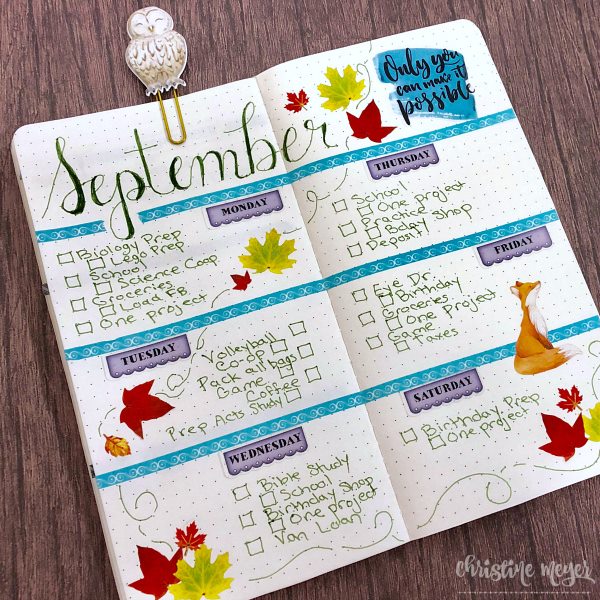 September
MONDAY
Biology Prep
Lego Prep
School
Science Coop
Groceries
Load FB
One project
TUESDAY
Volleyball
Co-op
Pack all bags
Game
Coffee
Prep Acts Study
WEDNESDAY
Bible Study
School
Birthday Shop
One project
Van
Only you
can make it
possible
THURSDAY
School
One project
Practice
Bday Shop
Deposit
FRIDAY
Eye Dr.
Birthday
Groceries
One Project
Game
Faxes
SATURDAY
Birthday Prep
One project
christine meyer